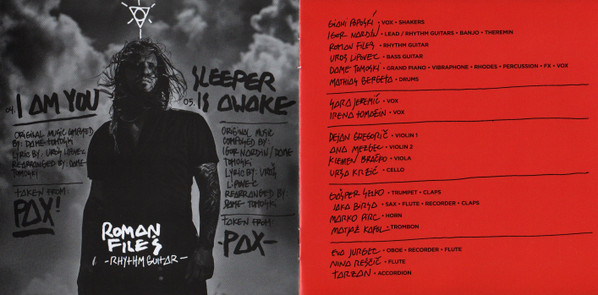 04. I AM YOU
ORIGINAL MUSIC COMPOSED
BY: DOME TOMOSKI
LYRIC BY: UROS LIPOVEC
REARRANGED BY: DOME
TOMOSKI
TAKEN FROM:
PAX!
SLEEPER
05. IS AWAKE
ORIGINAL MUSIC
COMPOSED BY:
IGOR NARDIN / DOME
TOMOSKI
LYRIC BY: UROS
LIPOVEC
REARRANGED BY:
DOME TOMOSKI
TAKEN FROM:
-PAX-
ROMAN
FILES
-RHYTHM GUITAR-
GIANI POPOSKI • VOX • SHAKERS
IGOR NARDIN • LEAD / RHYTHM GUITARS • BANJO • THEREMIN
ROMAN FILES • RHYTHM GUITAR
UROS LIPOVEC • BASS GUITAR
DOME TOMOSKI • GRAND PIANO • VIBRAPHONE • RHODES • PERCUSSION • FX • VOX
MATHIAS • DRUMS
SARA JEREMIĆ • VOX
IRENA TOMAŽIN • VOX
DEJAN GREGORIČ • VIOLIN 1
ANA MEZGEC • VIOLIN 2
KLEMEN BRAČKO • VIOLA
URŠA • CELLO
GAŠPER • TRUMPET • CLAPS
JAKA • SAX • FLUTE • RECORDER • CLAPS
MARKO • HORN
MATJAŽ • TROMBON
EVA JURGEC • OBOE • RECORDER • FLUTE
NINA • FLUTE
TARZAN • ACCORDION